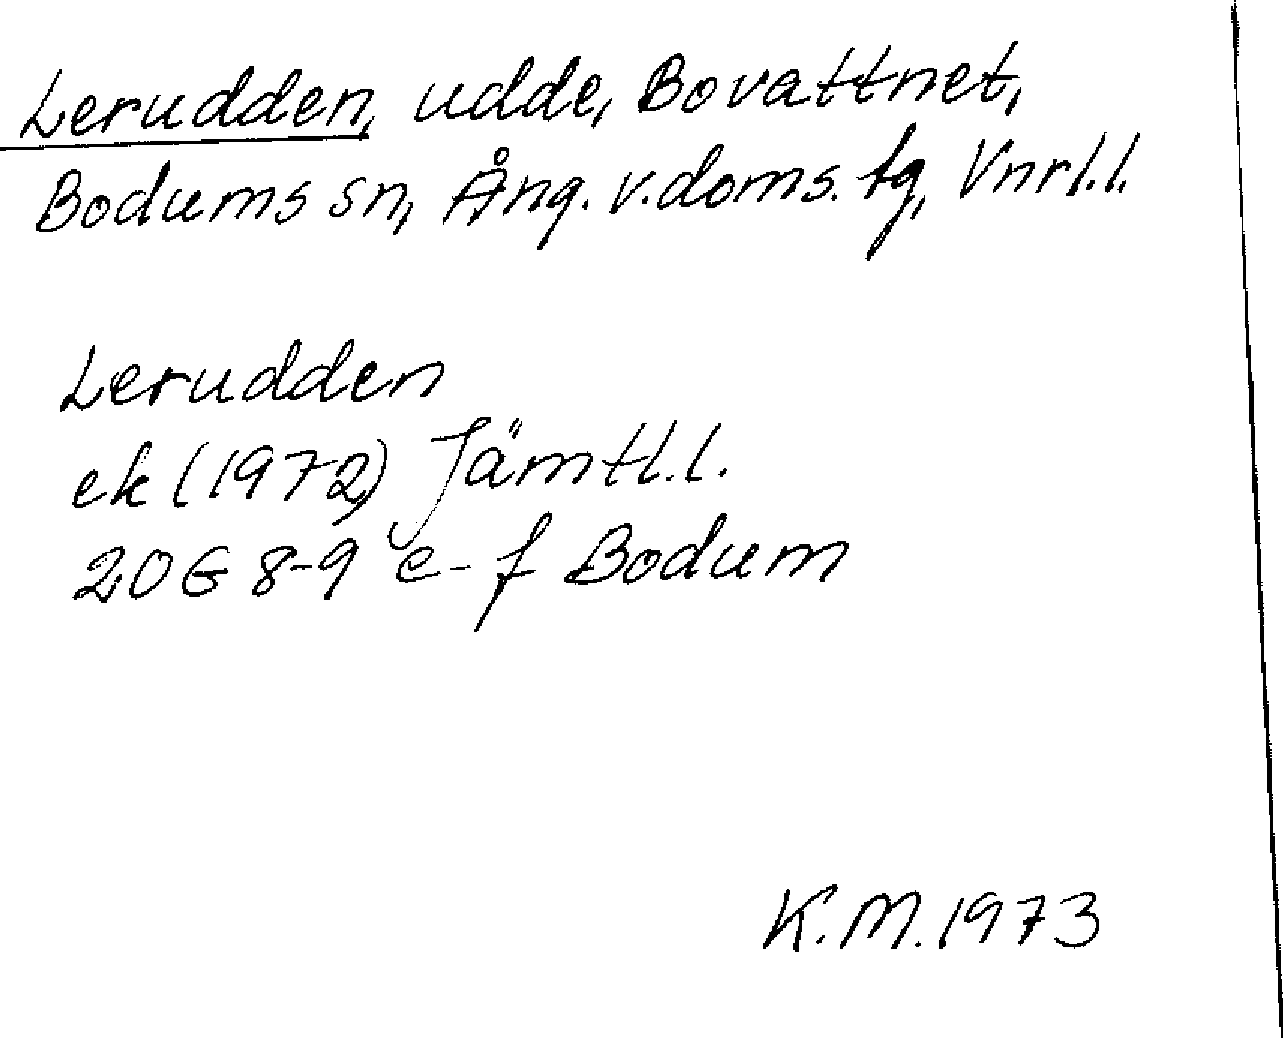 Lerudden, udde, Bovattnet,
Bodums sn, Ång. v. doms. tg, Vnrl.l.
Lerudden
ek (1972) Jämtl.l.
20G 8-9 e-f Bodum
K.M. 1973